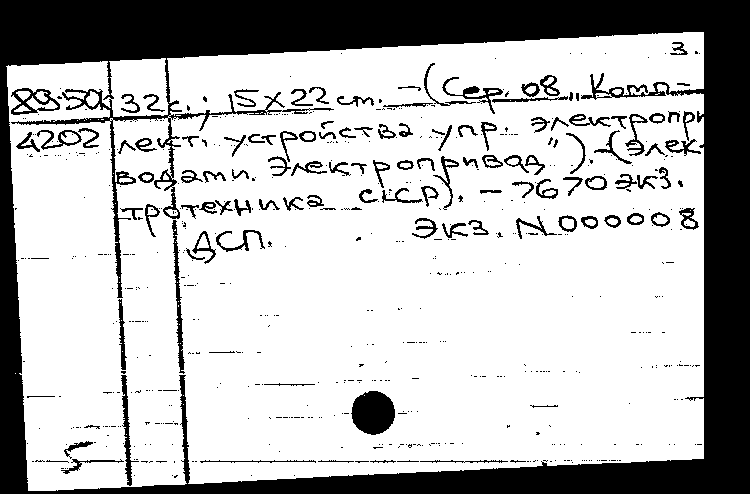 3.
89-50к 32 с.; 15×22 cm. – (Сер. 08 „Комп-
4202 лект. устройства упр. электропри
водами. Электропривод"). – (Элек-
тротехника СССР). – 7670 экз.
ДСП. Экз. N 000008
5